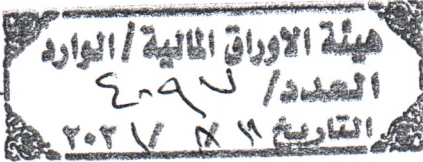 هيئة الاوراق المالية / الوارد
العدد / ٤٠٩٧
التاريخ ١١ / ٨ / ٢٠٢١